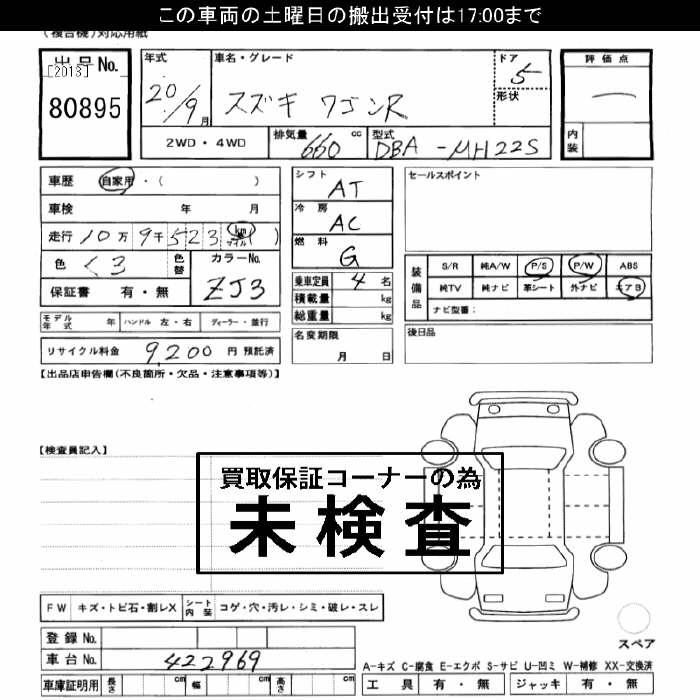 この車両の土曜日の搬出受付は17:00まで
(複合機)対応用紙
出品No. [2013] 80895
年式 20/9月
車名・グレード スズキ ワゴンR
ドア 5
形状
評価点
内装
2WD・4WD
排気量 660 cc
型式 DBA-MH22S
車歴 自家用・( )
車検 年 月
走行 10万 9千 523 km マイル ( )
色 くろ 色替 カラーNo. ZJ3
保証書 有・無
シフト AT
冷房 AC
燃料 G
乗車定員 4名
積載量 kg
総重量 kg
名変期限 月 日
セールスポイント
装備品 S/R 純A/W P/S P/W ABS
純TV 純ナビ 革シート 外ナビ エアB
ナビ型番:
後日品
モデル年式 年 ハンドル 左・右 ディーラー・並行
リサイクル料金 9,200 円 預託済
【出品店申告欄(不良箇所・欠品・注意事項等)】
【検査員記入】
買取保証コーナーの為
未検査
FW キズ・トビ石・割レX シート内装 コゲ・穴・汚レ・シミ・破レ・スレ
スペア
登録No.
車台No. 422969
車庫証明用 長さ cm 幅 cm 高さ cm
A-キズ C-腐食 E-エクボ S-サビ U-凹ミ W-補修 XX-交換済
工具 有・無 ジャッキ 有・無